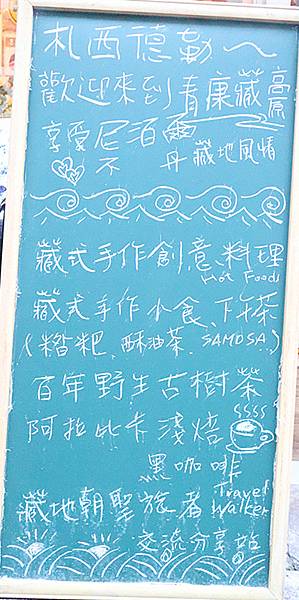 札西德勒～
歡迎來到青康藏高原
享受尼泊爾
不丹 藏地風情
藏式手作創意料理
Hot Foods
藏式手作小食、下午茶
(糌粑、酥油茶、SAMOSA...)
百年野生古樹茶
阿拉比卡淺焙
黑咖啡
藏地朝聖旅者
Travel
Walker
交流分享站